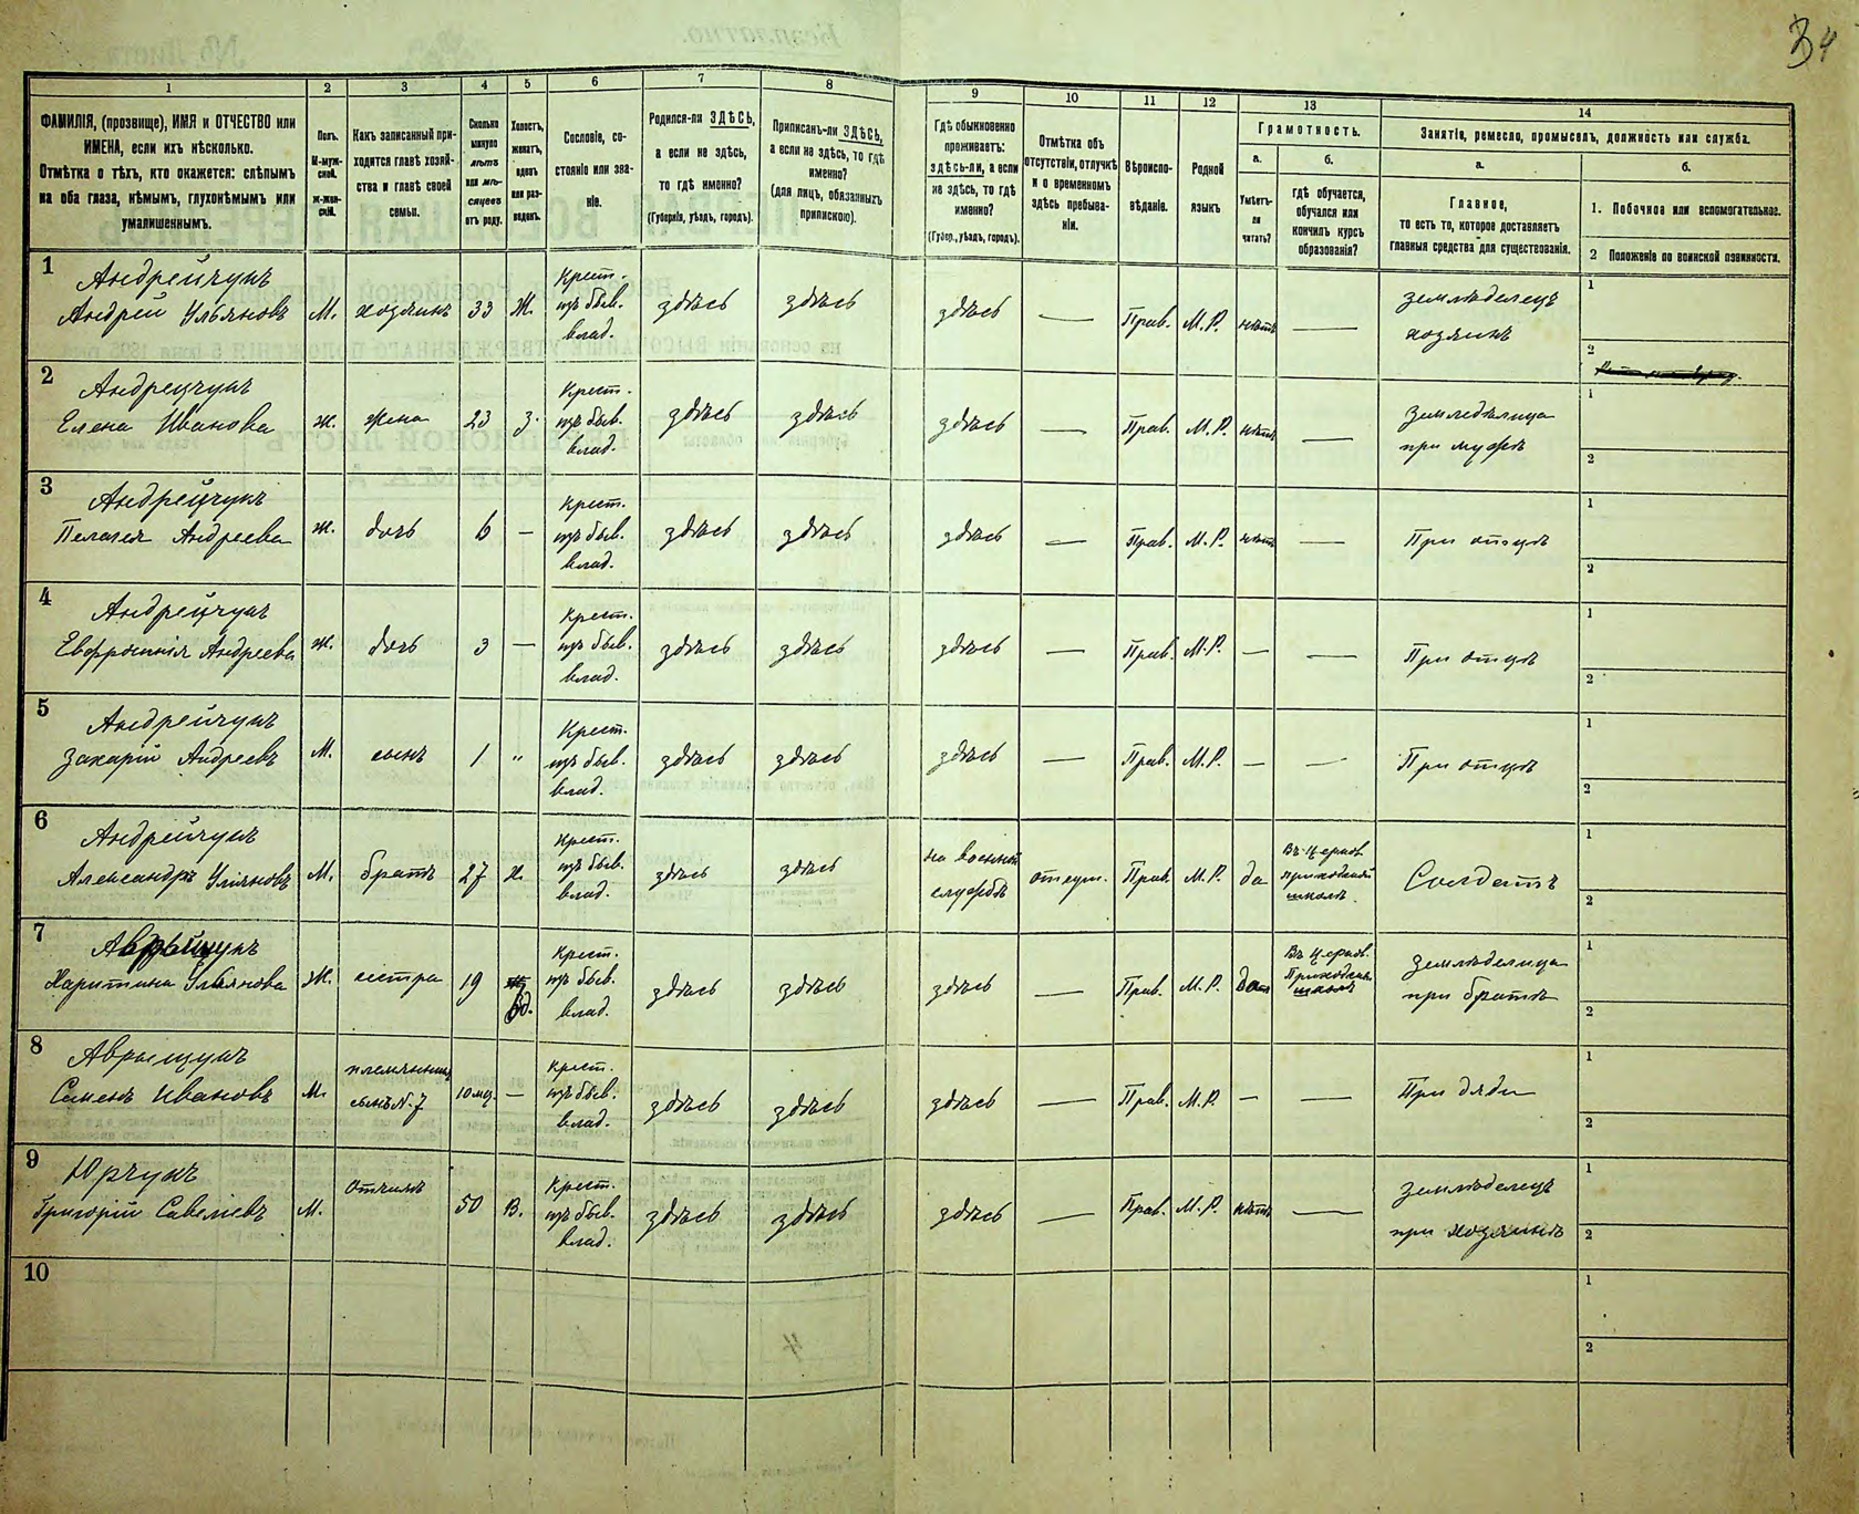 34
1
2
3
4
5
6
7
8
9
10
11
12
13
14
ФАМИЛІЯ, (прозвище), ИМЯ и ОТЧЕСТВО или
ИМЕНА, если ихъ нѣсколько.
Отмѣтка о тѣхъ, кто окажется: слѣпымъ
на оба глаза, нѣмымъ, глухонѣмымъ или
умалишеннымъ.
Полъ.
М-муж-
ской.
Ж-жен-
скій.
Какъ записанный при-
ходится главѣ хозяй-
ства и главѣ своей
семьи.
Сколько
минуло
лѣтъ
или мѣ-
сяцевъ
отъ роду.
Холостъ,
женатъ,
вдовъ
или раз-
веденъ.
Сословіе, со-
стояніе или зва-
ніе.
Родился-ли ЗДѢСЬ,
а если не здѣсь,
то гдѣ именно?
(Губернія, уѣздъ, городъ).
Приписанъ-ли ЗДѢСЬ,
а если не здѣсь, то гдѣ
именно?
(для лицъ, обязанныхъ
припискою).
Гдѣ обыкновенно
проживаетъ:
здѣсь-ли, а если
не здѣсь, то гдѣ
именно?
(Губер., уѣздъ, городъ).
Отмѣтка объ
отсутствіи, отлучкѣ
и о временномъ
здѣсь пребыва-
ніи.
Вѣроиспо-
вѣданіе.
Родной
языкъ
Грамотность.
а.
Умѣетъ-
ли
читать?
б.
Гдѣ обучается,
обучался или
кончилъ курсъ
образованія?
Занятіе, ремесло, промыселъ, должность или служба.
а.
Главное,
то есть то, которое доставляетъ
главныя средства для существованія.
б.
1. Побочное или вспомогательное.
2 Положеніе по воинской повинности.
1
Андрейчукъ
Андрей Ульяновъ
М.
хозяинъ
33
Ж.
Крест.
изъ быв.
влад.
здѣсь
здѣсь
здѣсь
—
Прав.
М.Р.
нѣтъ
—
земледѣлецъ
хозяинъ
1
2
2
Андрейчукъ
Елена Иванова
ж.
жена
23
з.
Крест.
изъ быв.
влад.
здѣсь
здѣсь
здѣсь
—
Прав.
М.Р.
нѣтъ
—
Земледѣлица
при мужѣ
1
2
3
Андрейчукъ
Пелагея Андреева
ж.
дочь
6
—
Крест.
изъ быв.
влад.
здѣсь
здѣсь
здѣсь
—
Прав.
М.Р.
нѣтъ
—
При отцѣ
1
2
4
Андрейчукъ
Евфросинія Андреева
ж.
дочь
3
—
Крест.
изъ быв.
влад.
здѣсь
здѣсь
здѣсь
—
Прав.
М.Р.
—
—
При отцѣ
1
2
5
Андрейчукъ
Захарій Андреевъ
М.
сынъ
1
"
Крест.
изъ быв.
влад.
здѣсь
здѣсь
здѣсь
—
Прав.
М.Р.
—
—
При отцѣ
1
2
6
Андрейчукъ
Александръ Уліяновъ
М.
братъ
27
х.
Крест.
изъ быв.
влад.
здѣсь
здѣсь
на воинной
службѣ
отсут.
Прав.
М.Р.
да
Въ церков.
приходской
школѣ
Солдатъ
1
2
7
Харитина Ульянова
Ж.
сестра
19
вд.
Крест.
изъ быв.
влад.
здѣсь
здѣсь
здѣсь
—
Прав.
М.Р.
да
Въ церков.
Приходской
школѣ
земледѣлица
при братѣ
1
2
8
Аврыщукъ
Семенъ Ивановъ
М.
племянникъ
сынъ N.7
10 мц.
—
Крест.
изъ быв.
влад.
здѣсь
здѣсь
здѣсь
—
Прав.
М.Р.
—
—
При дяди
1
2
9
Юрчукъ
Григорій Савеліевъ
М.
Отчимъ
50
В.
Крест.
изъ быв.
влад.
здѣсь
здѣсь
здѣсь
—
Прав.
М.Р.
нѣтъ
—
Земледѣлецъ
при хозяинѣ
1
2
10
1
2